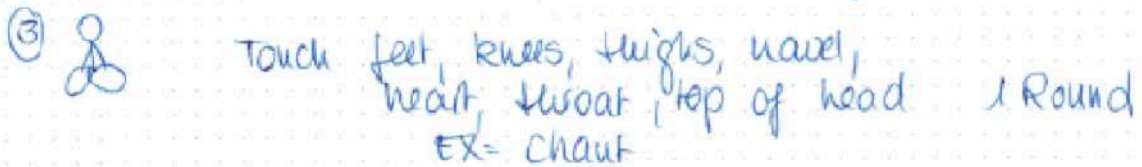 ③ Touch feet, knees, thighs, navel,
heart, throat, top of head 1 Round
EX = chant